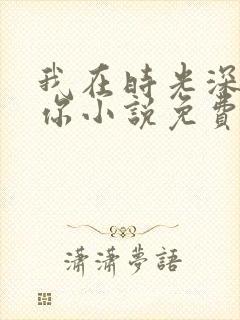 我在時光深
你小說免費
瀟瀟夢語